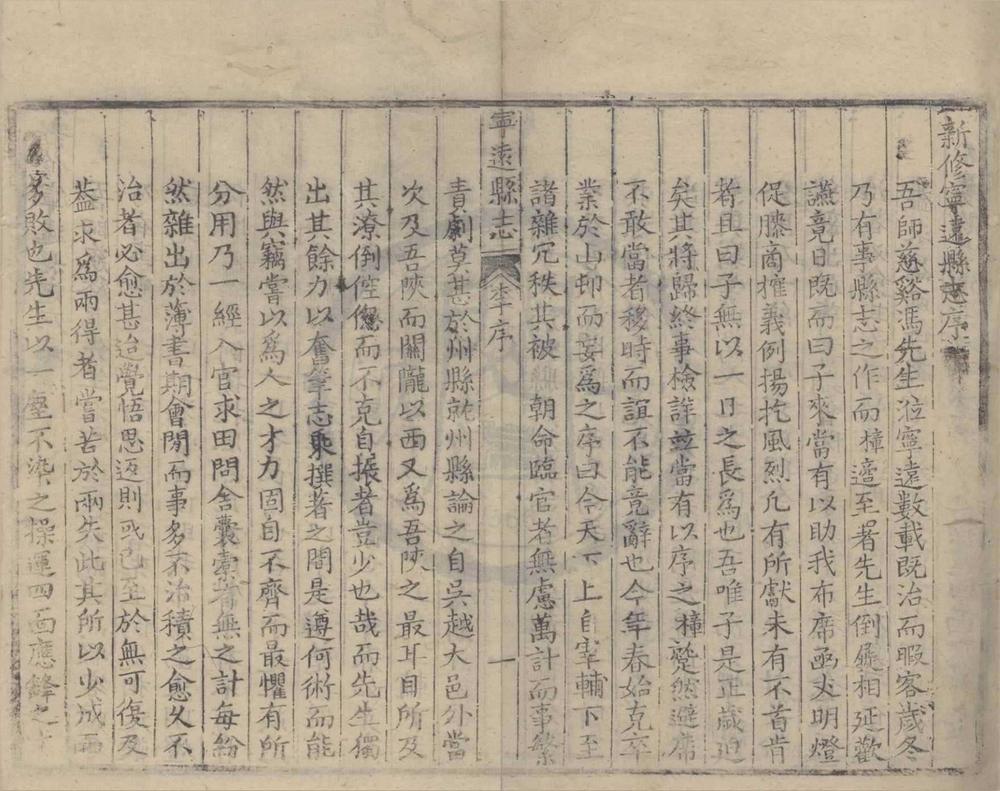 新修寧遠縣志序
吾師慈谿馮先生涖寧遠數載既治而暇客歲冬
乃有事縣志之作而樟適至署先生倒屣相延歡
讌竟日既而曰子來當有以助我布席函丈明燈
促膝商榷義例揚扢風烈凡有所獻未有不首肯
者且曰子無以一日之長爲也吾唯子是正歲迫
矣其將歸終事檢詳並當有以序之樟蹵然避席
不敢當者移時而誼不能竟辭也今年春始克卒
業於山邨而妄爲之序曰今天下上自宰輔下至
諸雜冗秩其被朝命臨官者無慮萬計而事繁
寧遠縣志 李序 一
責劇莫甚於州縣就州縣論之自吳越大邑外當
次及吾陝而關隴以西又爲吾陝之最耳目所及
其潦倒倥傯而不克自振者豈少也哉而先生獨
出其餘力以奮筆志乘撰著之間是遵何術而能
然與竊嘗以爲人之才力固自不齊而最懼有所
分用乃一經入官求田問舍囊橐着無之計每紛
然雜出於薄書期會閒而事多不治積之愈久不
治者必愈甚迨覺悟思返則或已至於無可復及
葢求爲兩得者嘗苦於兩失此其所以少成而
多敗也先生以一塵不染之操運四面應鋒之